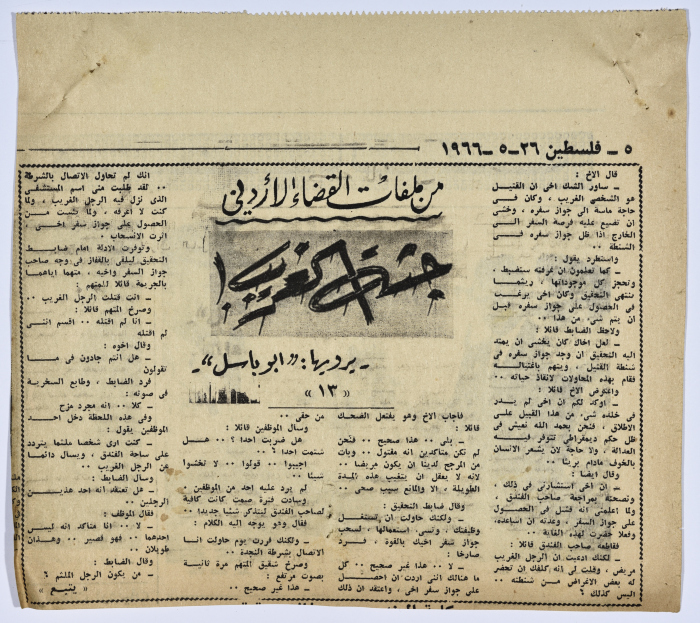 ٥ - فلسطين ٢٦-٥-١٩٦٦
من ملفات القضاء الأردني
جثة الغريب!
- يرويها: «ابو باسل» -
« ١٣ »
قال الاخ :
- ساور الشك اخي ان القتيل
هو الشخص الغريب ، وكان في
حاجة ماسة الى جواز سفره ، وخشي
ان تضيع عليه فرصة السفر الى
الخارج اذا ظل جواز سفره في
الشنطة ..
واستطرد يقول :
- كما تعلمون ان غرفته ستضبط ،
وتحجز كل موجوداتها ، وريثما
ينتهي التحقيق وكان اخي يرغب
في الحصول على جواز سفره قبل
ان يتم شيء من هذا ..
ولاحظ الضابط قائلا :
- لعل اخاك كان يخشى ان يمتد
اليه التحقيق ان وجد جواز سفره في
شنطة القتيل ، ويتهم باغتياله
فقام بهذه المحاولات لانقاذ حياته ..
واعترض الاخ قائلا :
- اؤكد لكم ان اخي لم يدر
في خلده شيء من هذا القبيل على
الاطلاق ، فنحن بحمد الله نعيش في
ظل حكم ديمقراطي تتوفر فيه
العدالة ، ولا حاجة لان يشعر الانسان
بالخوف مادام بريئا ..
وقال ايضا :
- ان اخي استشارني في ذلك ،
ونصحته بمراجعة صاحب الفندق ،
ولما اعلمني انه فشل في الحصول
على جواز السفر ، وعدته ان اساعده،
وفعلا حضرت لهذه الغاية ..
فقاطعه صاحب الفندق قائلا :
- لكنك ادعيت ان الرجل الغريب
مريض ، وقلت لي انه كلفك ان تحضر
له بعض الاغراض من شنطته ..
اليس كذلك ؟
فاجاب الاخ وهو يفتعل الضحك
قائلا :
- بلى .. هذا صحيح .. فنحن
لم نكن متأكدين انه مقتول .. وبات
من المرجح لدينا ان يكون مريضا ..
لانه لا يعقل ان يتغيب هذه المدة
الطويلة ، الا ولمانع سبب صحي ..
وقال ضابط التحقيق :
- ولكنك حاولت ان تستغل
وظيفتك ، وتسيء استعمالها ، لسحب
جواز سفر اخيك بالقوة ، فرد
صارخا :
- لا .. هذا غير صحيح .. كل
ما هنالك انني اردت ان احصل
على جواز سفر اخي ، واعتقد ان ذلك
من حقي ..
وسأل الموظفين قائلا :
- هل ضربت احدا ؟ .. هل
شتمت احدا ؟ ..
اجيبوا .. قولوا .. لا تخشوا
شيئا ..
لم يرد عليه احد من الموظفين .
وسادت فترة صمت كانت كافية
لصاحب الفندق ليتذكر شيئا جديدا ..
فقال وهو يوجه اليه الكلام :
- ولكنك قررت يوم حاولت انا
الاتصال بشرطة النجدة ..
وصرخ شقيق المتهم مرة ثانية
بصوت مرتفع :
- هذا غير صحيح ..
انك لم تحاول الاتصال بالشرطة
.. لقد طلبت مني اسم المستشفى
الذي نزل فيه الرجل الغريب ، ولما
كنت لا اعرفه ، ولما يئست من
الحصول على جواز سفر اخي ،
اثرت الانسحاب ..
وتوفرت الادلة امام ضابط
التحقيق ليلقي بالقفاز في وجه صاحب
جواز السفر واخيه ، متهما اياهما
بالجريمة قائلا للمتهم :
- انت قتلت الرجل الغريب ..
وصرخ المتهم قائلا :
- انا لم اقتله .. اقسم انني
لم اقتله
وقال اخوه :
- هل انتم جادون في ما
تقولون
فرد الضابط ، وطابع السخرية
في صوته :
- كلا .. انه مجرد مزح
وفي هذه اللحظة دخل احد
الموظفين يقول :
- كنت ارى شخصا ملثما يتردد
على ساحة الفندق ، ويسأل دائما
عن الرجل الغريب ..
وسأل الضابط :
- هل تعتقد انه احد هذين
الرجلين ..
فقال الموظف :
- لا .. انا متأكد انه ليس
احدهما .. فهو قصير .. وهذان
طويلان
وقال الضابط :
- من يكون الرجل الملثم ؟
« يتبع »